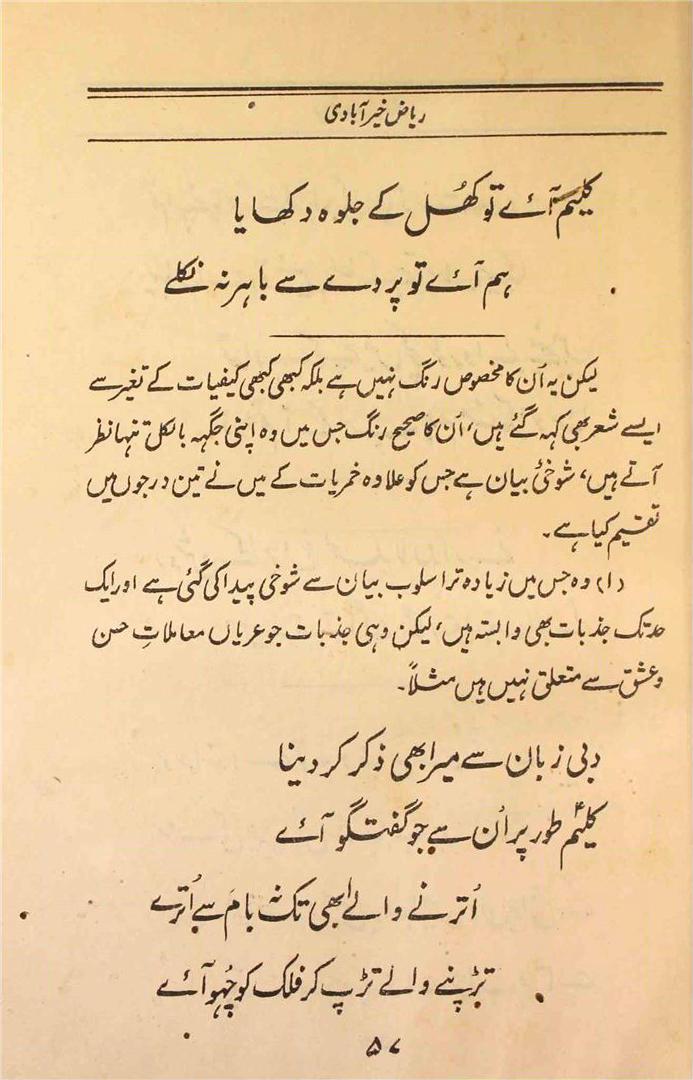 ریاض خیرآبادی
کلیم آئے تو کھُل کے جلوہ دکھایا
ہم آئے تو پردے سے باہر نہ نکلے
لیکن یہ اُن کا مخصوص رنگ نہیں ہے بلکہ کبھی کبھی کیفیات کے تغیر سے
ایسے شعر بھی کہہ گئے ہیں، اُن کا صحیح رنگ جس میں وہ اپنی جگہہ بالکل تنہا نظر
آتے ہیں، شوخیٔ بیان ہے جس کو علاوہ خمریات کے میں نے تین درجوں میں
تقسیم کیا ہے۔
(۱) وہ جس میں زیادہ تر اسلوب بیان سے شوخی پیدا کی گئی ہے اور ایک
حد تک جذبات بھی وابستہ ہیں، لیکن وہی جذبات جو عریاں معاملاتِ حسن
و عشق سے متعلق نہیں ہیں مثلاً۔
دبی زبان سے میرا بھی ذکر کر دینا
کلیمؑ طور پر اُن سے جو گفتگو آئے
اُترنے والے ابھی تک نہ بام سے اُترے
تڑپنے والے تڑپ کر فلک کو چُھو آئے
۵۷